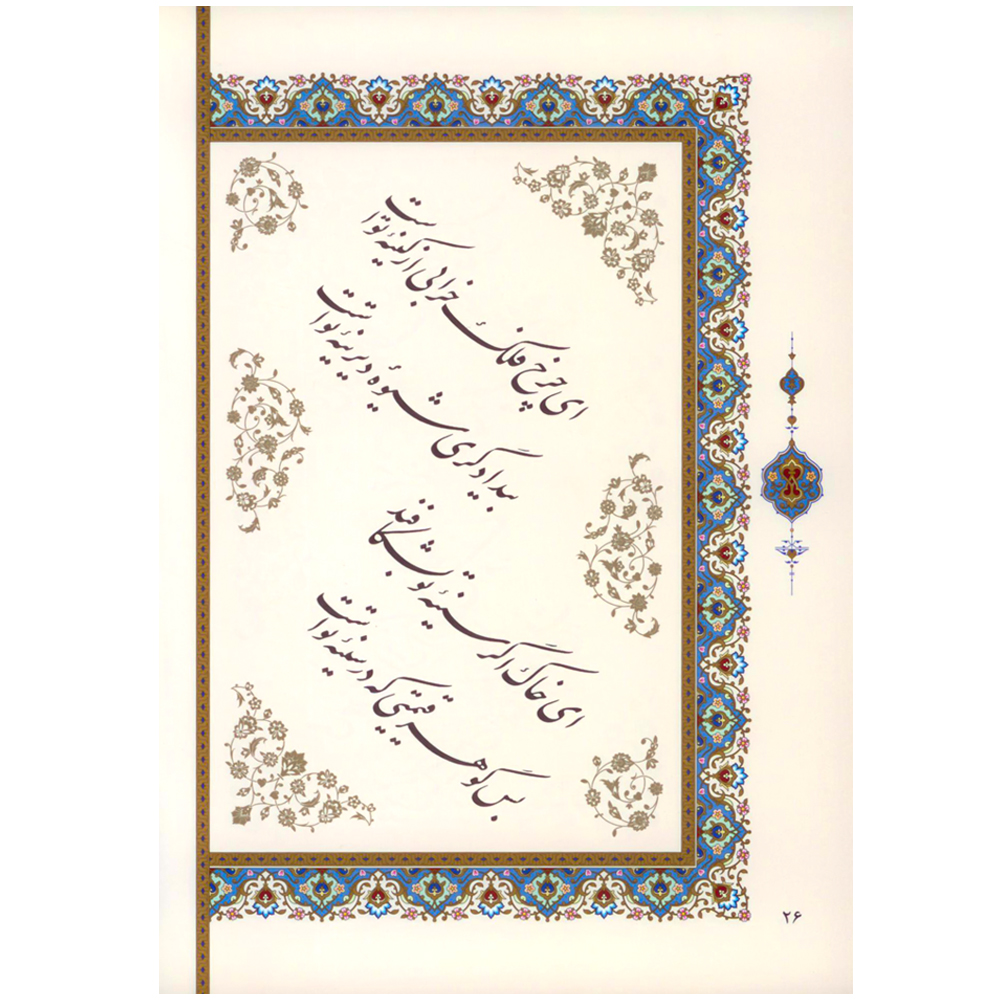 ای چرخ فلک خرابی از کینهٔ تو است
بیدادگری شیوهٔ دیرینهٔ تو است
ای خاک اگر سینهٔ تو بشکافند
بس گوهر قیمتی که در سینهٔ تو است
۲۶